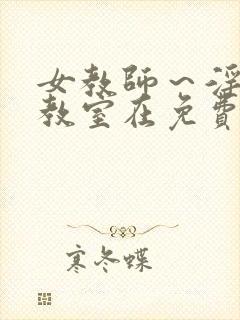 女教師～淫
教室在免費
寒冬蝶